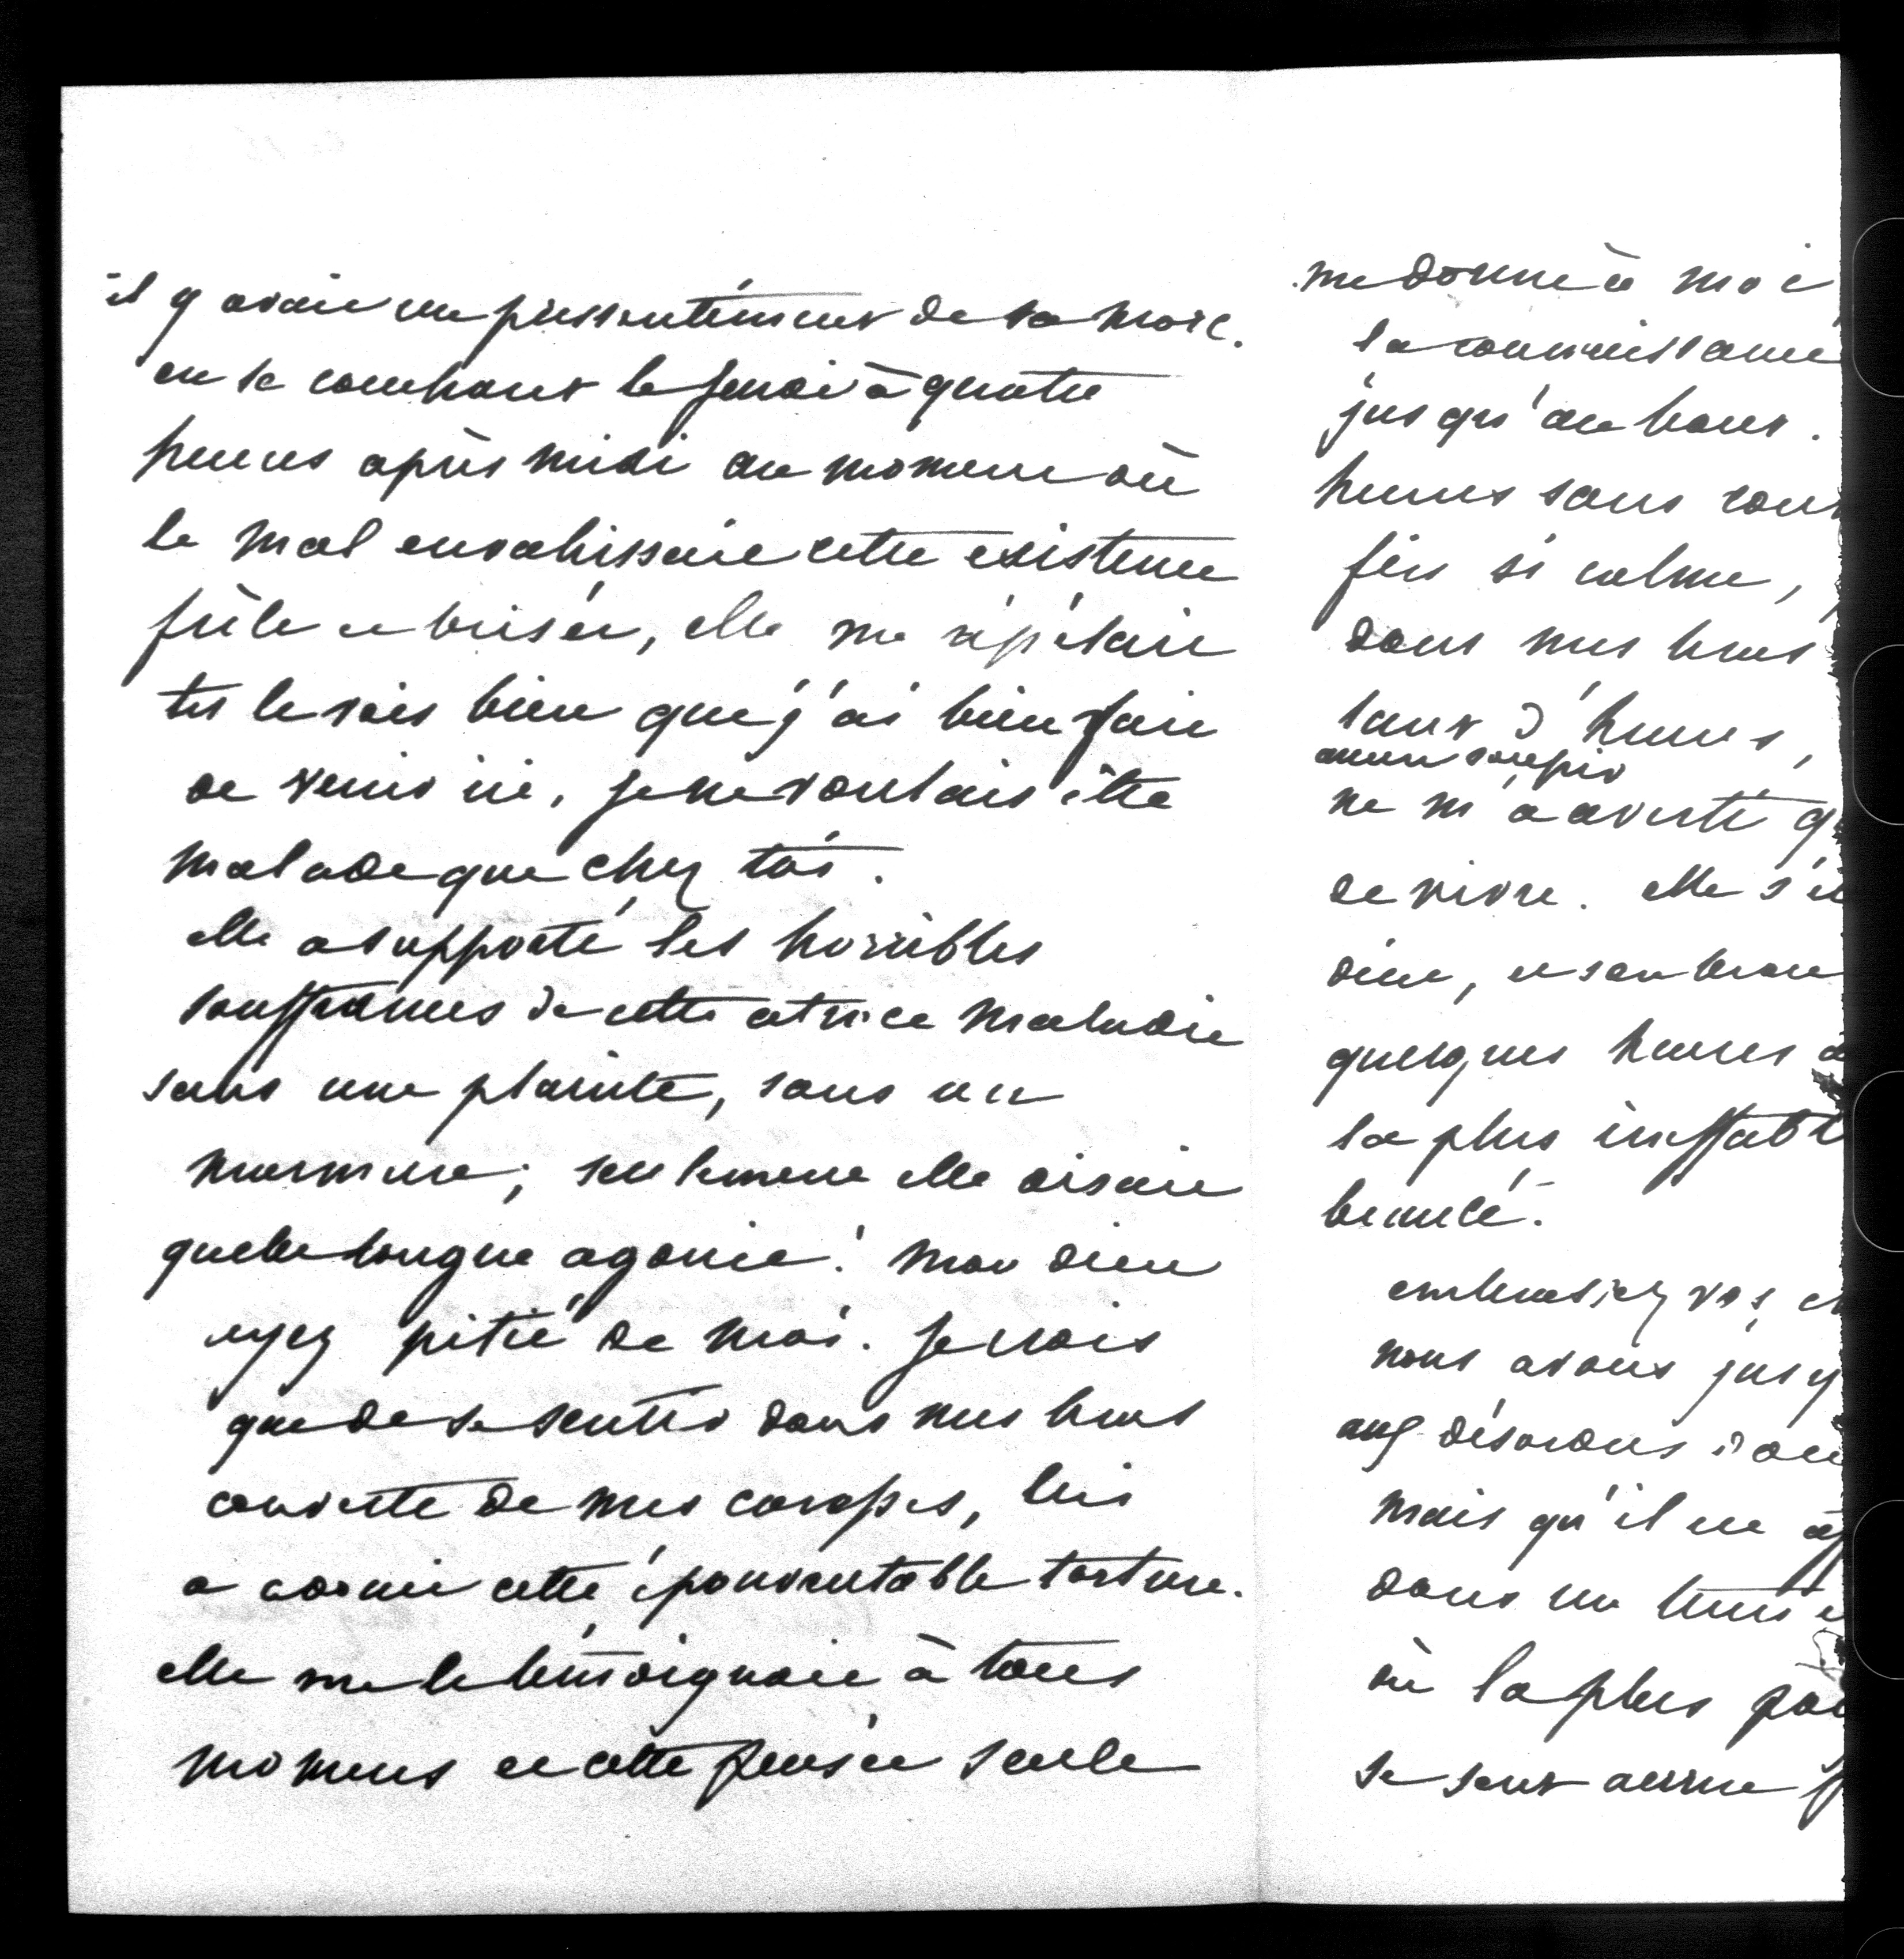 il y avait un pressentiment de sa mort.
en se couchant le jeudi à quatre
heures après midi au moment où
le mal envahissait cette existence
frêle et brisée, elle me répétait
tu le vois bien que j'ai bien fait
de venir ici, je ne voulais être
malade que chez toi.
elle a supporté les horribles
souffrances de cette atroce maladie
sans une plainte, sans un
murmure; seulement elle disait
quelle longue agonie! mon dieu
ayez pitié de moi. Je crois
que de se sentir dans mes bras
couverte de mes caresses, lui
a adouci cette épouvantable torture.
elle me le témoignait à tous
momens et cette pensée seule
me donne à moi
la connaissance
jusqu'au bout.
heures sans
fin si calme,
dans mes bras
tant d'heures,
aucun soupir
ne m'a averti
de vivre. elle
dieu, et son
quelques heures
la plus
beauté.
embrassez vos
nous avons
aux désordres
mais qu'il ne
dans un tems
où la plus
se sent